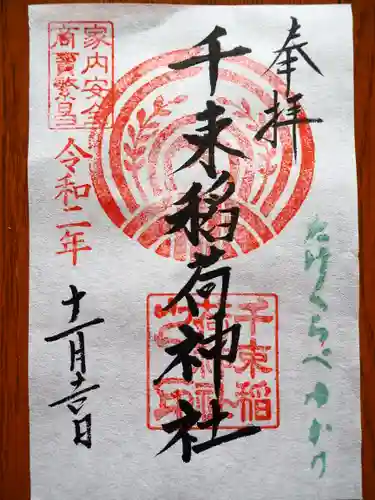 奉拝
たけくらべ ゆかり
千束稲荷神社
千束稲
荷神社
之印
家内安全
商賣繁昌
令和二年
十一月吉日